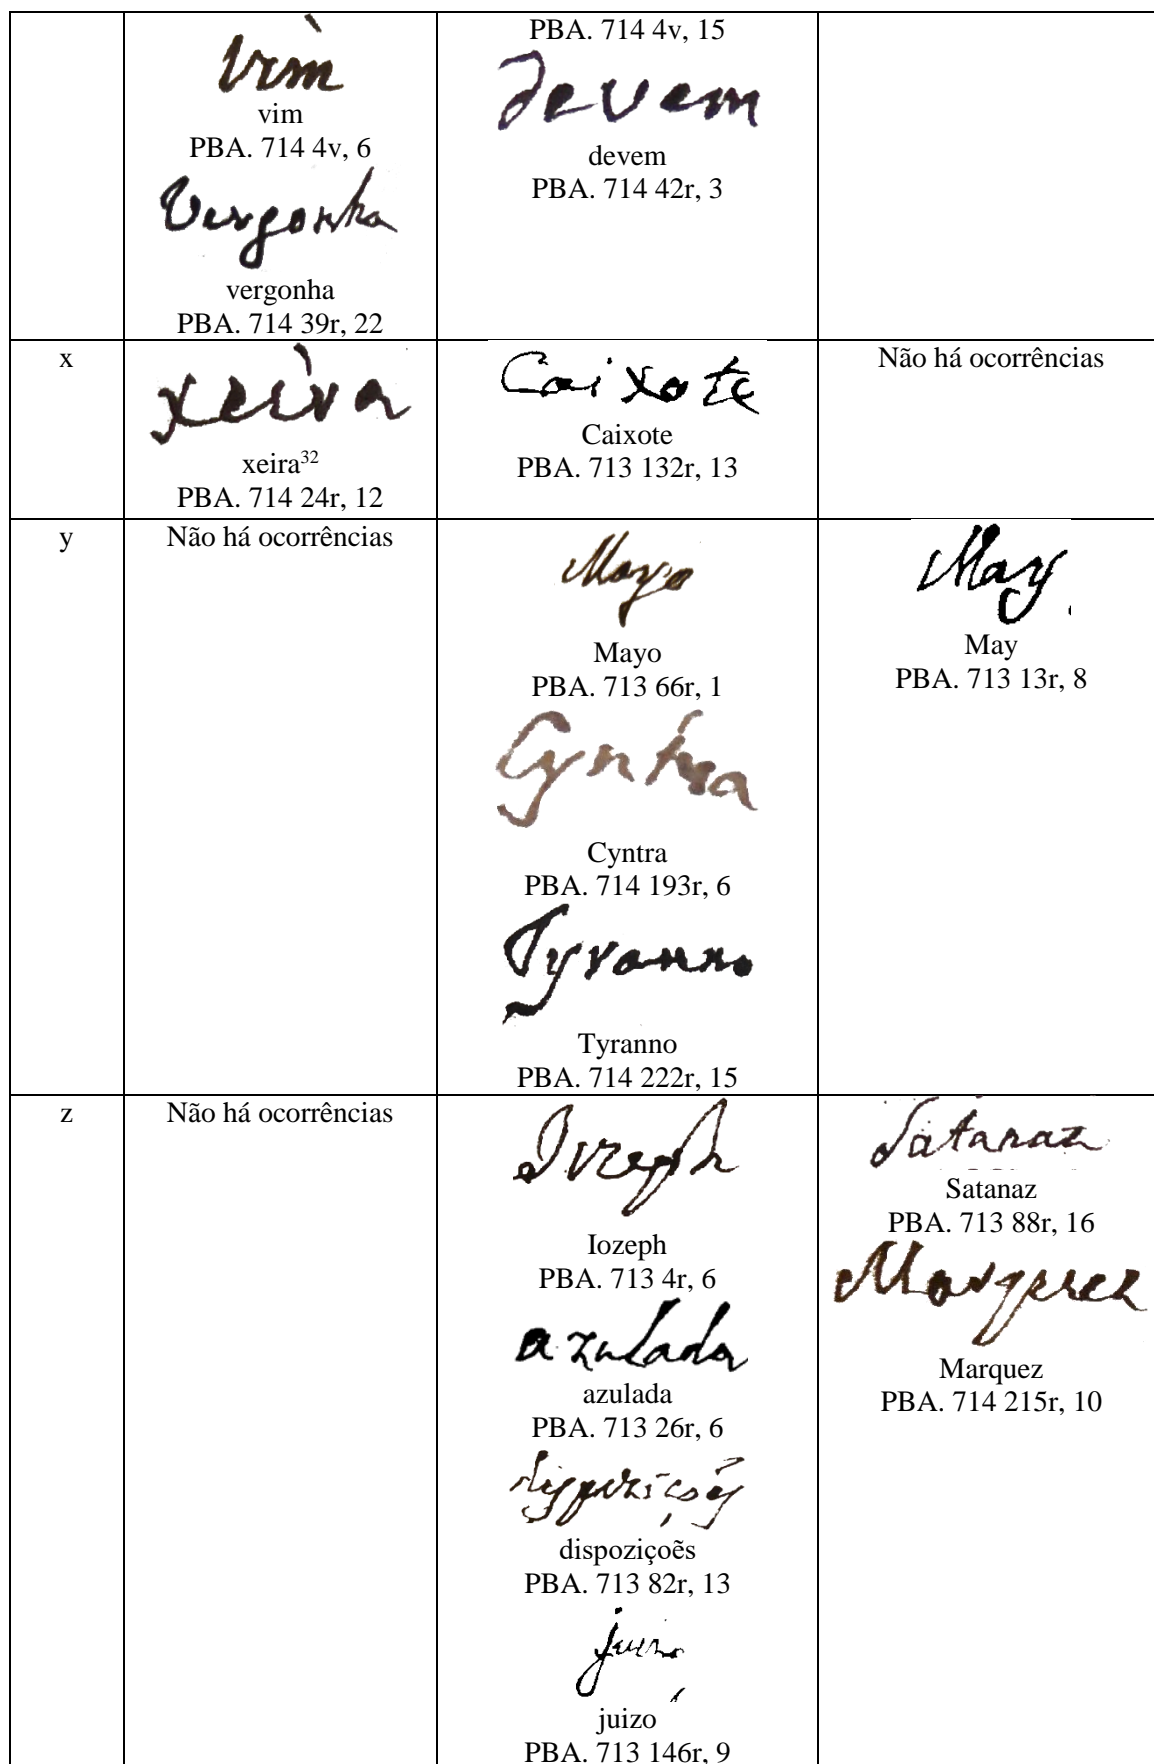 vim
vim
PBA. 714 4v, 6
Vergonha
vergonha
PBA. 714 39r, 22
PBA. 714 4v, 15
devem
devem
PBA. 714 42r, 3
x
xeira
xeira32
PBA. 714 24r, 12
Caixote
Caixote
PBA. 713 132r, 13
Não há ocorrências
y
Não há ocorrências
Mayo
Mayo
PBA. 713 66r, 1
Cyntra
Cyntra
PBA. 714 193r, 6
Tyranno
Tyranno
PBA. 714 222r, 15
May
May
PBA. 713 13r, 8
z
Não há ocorrências
Iozeph
Iozeph
PBA. 713 4r, 6
azulada
azulada
PBA. 713 26r, 6
dispoziçoẽs
dispoziçoẽs
PBA. 713 82r, 13
juizo
juizo
PBA. 713 146r, 9
Satanaz
Satanaz
PBA. 713 88r, 16
Marquez
Marquez
PBA. 714 215r, 10